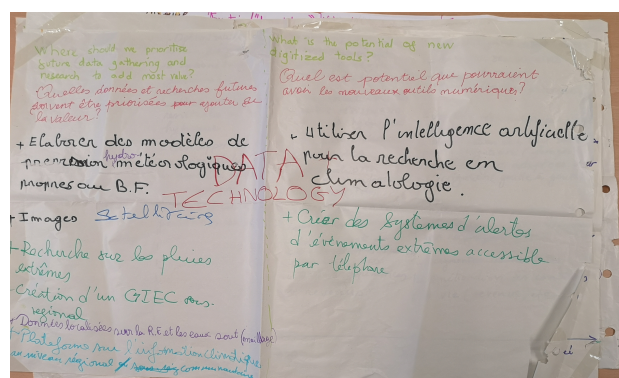 Where should we prioritise
future data gathering and
research to add most value?
Quelles données et recherches futures
doivent être priorisées pour ajouter de
la valeur?
+ Elaborer des modèles de
hydro
météorologiques
propres au B.F.
DATA
TECHNOLOGY
+ Images Satellitaires
+ Recherche sur les pluies
extrêmes
Création d'un GIEC
regional
+ Données localisées sur la R.F et les eaux sout
+ Plateforme sur l'information climatique
au niveau régional
What is the potential of new
digitized tools?
Quel est potentiel que pourraient
avoir les nouveaux outils numériques?
Utiliser l'intelligence artificielle
pour la recherche en
climatologie.
+ Créer des systèmes d'alertes
d'évènements extrêmes accessible
par téléphone